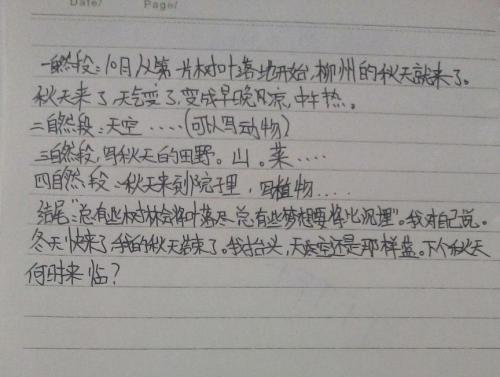 Date/ Page/
一自然段:10月从第一片树叶落地开始,柳州的秋天就来了。
秋天来了,天气变了,变成早晚风凉,中午热。
二自然段:天空.....(可以写动物)
三自然段,写秋天的田野。山。菜....
四自然段:秋天来到院子里,写植物....
结尾"总有些树林会将叶落尽,总有些梦想要将它沉埋"。我对自己说。
冬天快来了,我的秋天结束了。我抬头,天空还是那样蓝。下个秋天
何时来临?